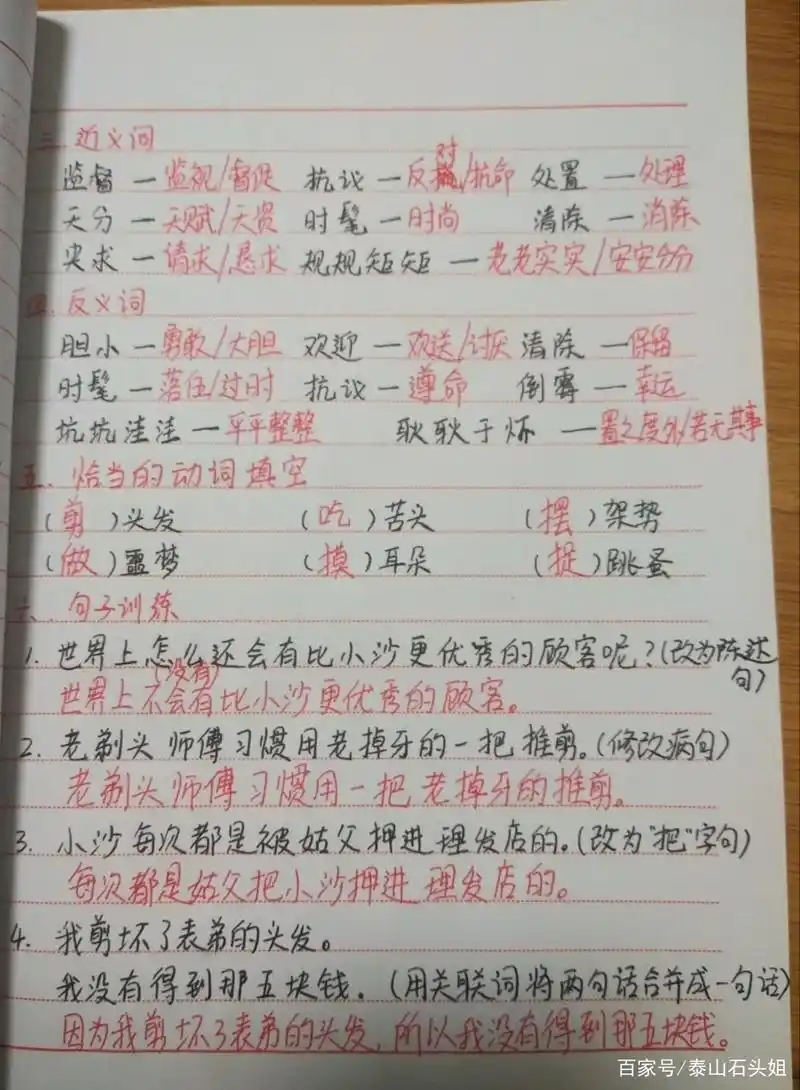 三.近义词
监督 — 监视/督促 抗议 — 反对/抗命 处置 — 处理
天分 — 天赋/天资 时髦 — 时尚 清除 — 消除
央求 — 请求/恳求 规规矩矩 — 老老实实/安安分分
四.反义词
胆小 — 勇敢/大胆 欢迎 — 欢送/讨厌 清除 — 保留
时髦 — 落伍/过时 抗议 — 遵命 倒霉 — 幸运
坑坑洼洼 — 平平整整 耿耿于怀 — 置之度外/若无其事
五.恰当的动词填空
(剪)头发 (吃)苦头 (摆)架势
(做)噩梦 (摸)耳朵 (捉)跳蚤
六.句子训练
1. 世界上怎么还会有比小沙更优秀的顾客呢?(改为陈述句)
(没有)
世界上不会有比小沙更优秀的顾客。
2. 老剃头师傅习惯用老掉牙的一把推剪。(修改病句)
老剃头师傅习惯用一把老掉牙的推剪。
3. 小沙每次都是被姑父押进理发店的。(改为"把"字句)
每次都是姑父把小沙押进理发店的。
4. 我剪坏了表弟的头发。
我没有得到那五块钱。(用关联词将两句话合并成一句话)
因为我剪坏了表弟的头发,所以我没有得到那五块钱。
百家号/泰山石头姐